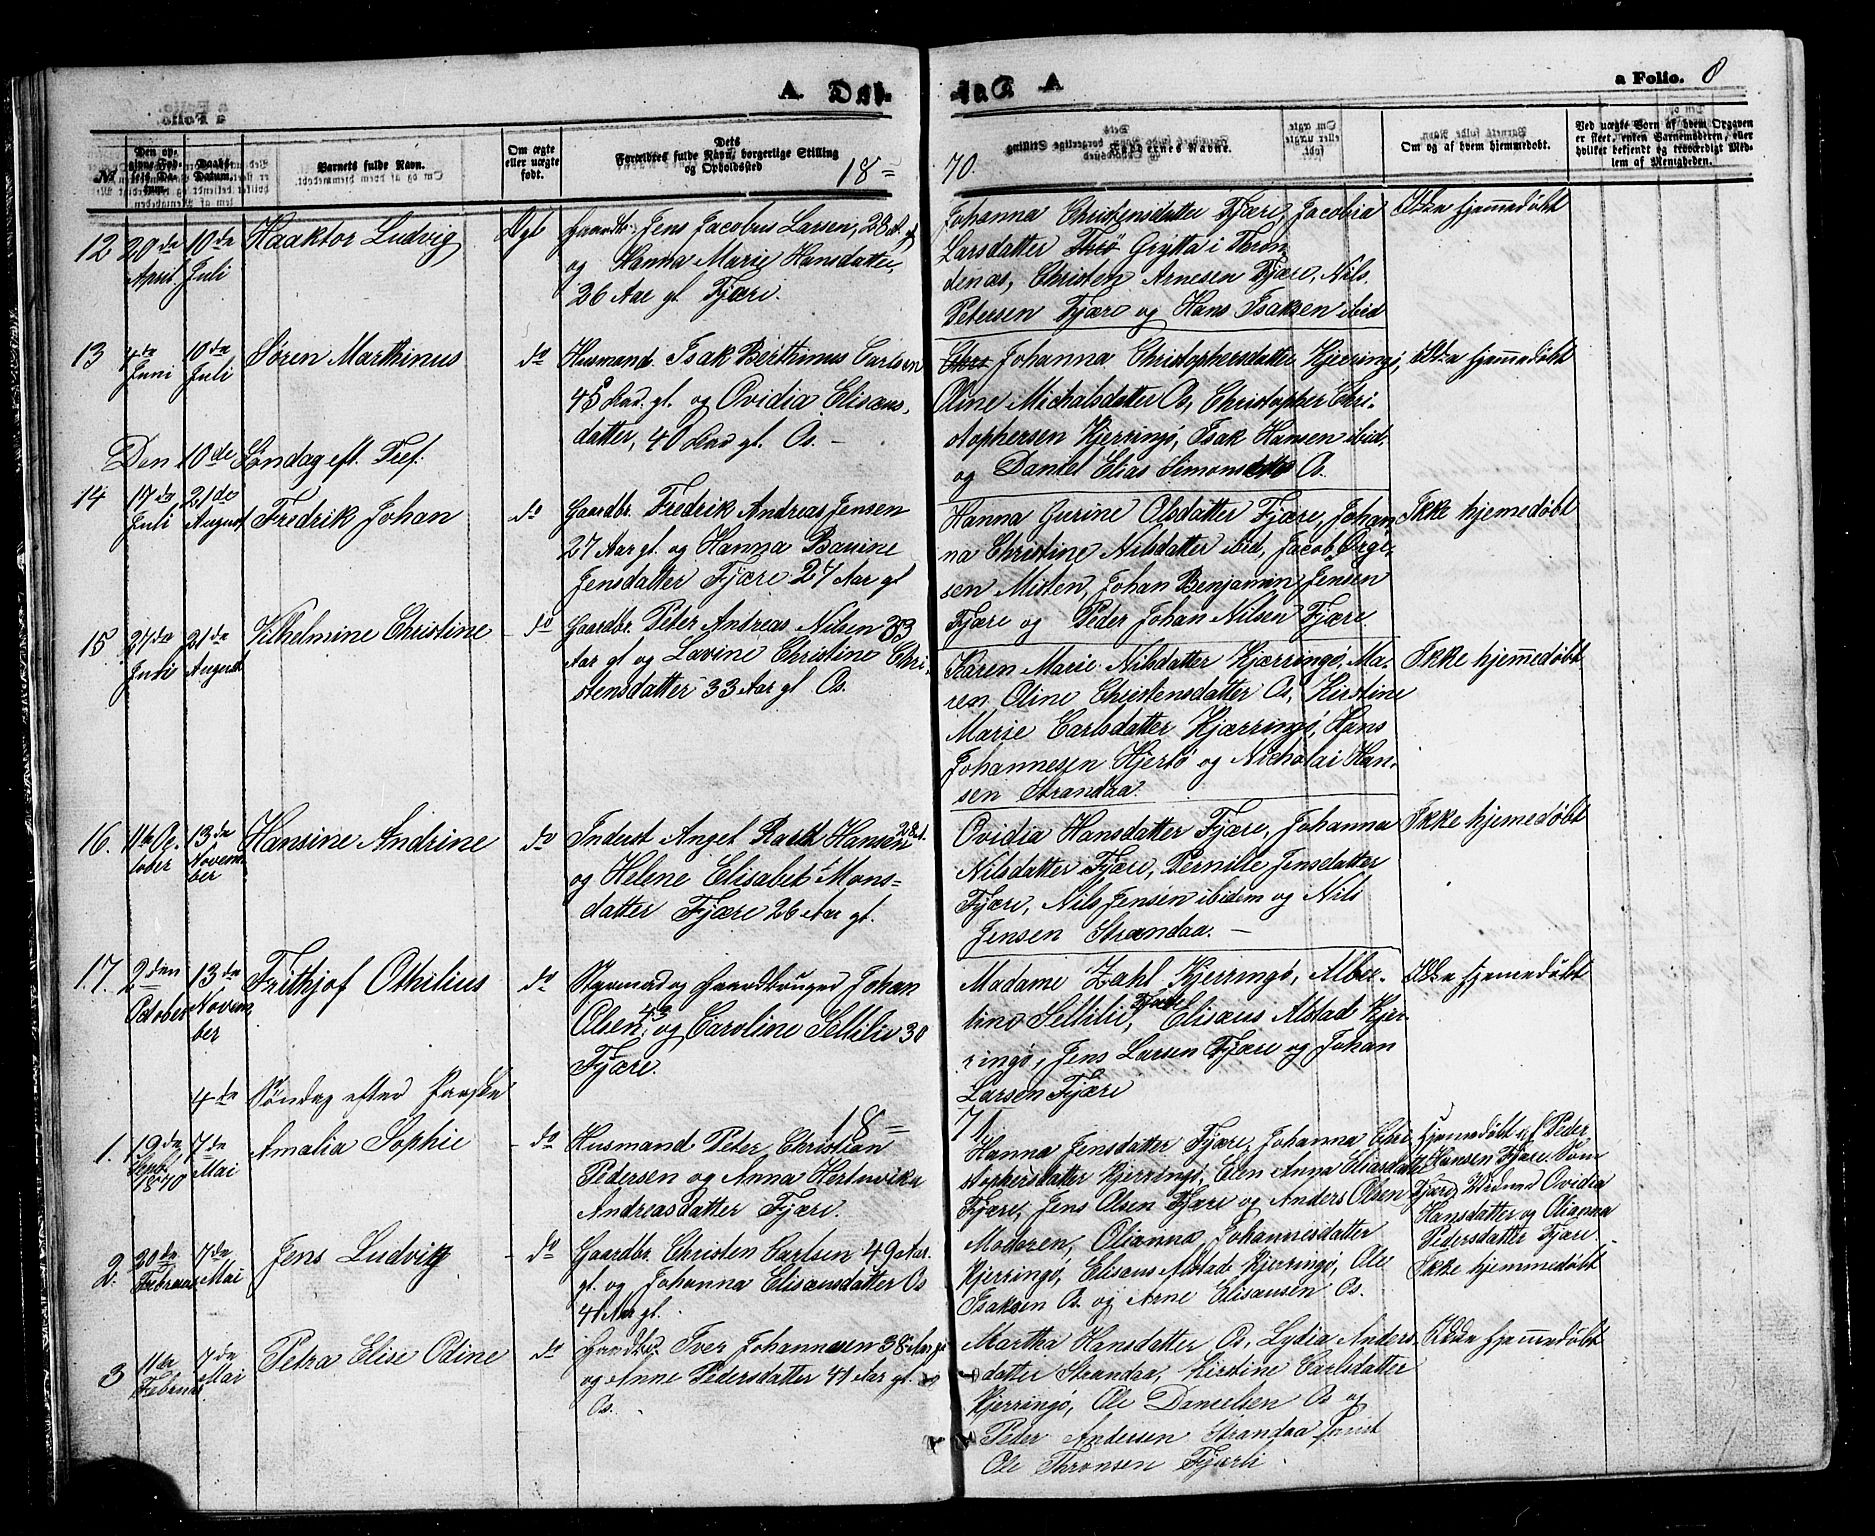 A. Døbte. A a Folio. 8
№ Den opgivne Fødsels Datum. Daabs Datum. Barnets fulde Navn. Om ægte eller uægte født. Dets Forældres fulde Navn, borgerlige Stilling og Opholdssted 18= 70. Faddernes Navne. Om og af hvem hjemmedøbt. Ved uægte Børn af hvem Opgaven er skeet, enten Barnemoderen, eller hvilket bekjendt og troværdigt Medlem af Menigheden.
12 20de April 10de Juli Haaktor Ludvig Ægt
Gaardb: Jens Jacobus Larsen, 28
og Hanna Marie Hansdatter,
26 Aar gl. Fjære.
Johanna Christensdatter Fjære, Jacobia
Larsdatter Grytta i Thron
denæs, Christen Arnesen Fjære, Nils
Petersen Fjære og Hans Isaksen ibid
Ikke hjemmedøbt
13 4de Juni 10de Juli Søren Marthinus do
Husmand Isak Berthinus Carlsen
45 Aar. gl. og Ovidia Elisæus-
datter, 40 Aar gl. Os. –
Johanna Christophersdatter Kjerringø,
Oline Michalsdatter Os, Christopher Chri-
stophersen Kjerringø, Isak Hansen ibid.
og Daniel Elias Simonsen Os.
Ikke hjemmedøbt
Den 10de Søndag eft. Tref.
14 17de Juli 21de August Fredrik Johan do
Gaardbr. Fredrik Andreas Jensen
27 Aar gl. og Hanna Bauine
Jensdatter Fjære 27 Aar gl
Hanna Gurine Olsdatter Fjære, Johan
na Christine Nilsdatter ibid, Jacob Ørge-
sen Misten, Johan Benjamin Jensen
Fjære og Peder Johan Nilsen Fjære
Ikke hjemedøbt
15. 27de Juli 21de August Vilhelmine Christine do
Gaardbr. Peter Andreas Nilsen 33
Aar gl og Lavine Christine Chri-
stensdatter 33 Aar gl Os.
Karen Marie Nilsdatter Kjærringø, Ma-
ren Oline Christensdatter Os, Kirstine
Marie Carlsdatter Kjærringø, Hans
Johannesen Hjertø og Nicholai Han-
sen Strandaa.
Ikke hjemmedøbt
16. 11te October 13de November Hansine Andrine do
Inderst Angel Hansen 28
og Helene Elisabet Mons=
datter Fjære 26 Aar gl.
Ovidia Hansdatter Fjære, Johanna
Nilsdatter Fjære, Pernille Jensdatter
Fjære, Nils Jensen ibidem og Nils
Jensen Strandaa. –
Ikke hjemmedøbt
17. 2den October 13de November Frithjof Othilius do
Styrmand og Gaardbruger Johan
Olsen, 43 og Caroline Sellilie 30
Fjære.
Madame Zahl Kjerringø, Alber-
tine Sellilie, Fjære Elisæus Alstad Kjer-
ringø, Jens Larsen Fjære og Johan
Larsen Fjære
Ikke hjemmedøbt
4de Søndag efter Paaske
18= 71.
1. 19de Septb. 1870 7de Mai Amalia Sophie do
Husmand Peter Christian
Pedersen og Anna Hertnvike
Andreasdatter Fjære.
Hanna Jensdatter Fjære, Johanna Chri
stophersdatter Kjerringø, Elen Anna Eliasdatter
Fjære, Jens Olsen Fjære og Anders Olsen Fjære
Hjemmedøbt af Peder
Hansen Fjære.
Ovidia
Hansdatter og Olianna
Pedersdatter Fjære.
2. 20de Februar 7de Mai Jens Ludvig do
Gaardbr. Christen Carlsen 49 Aar.
gl. og Johanna Elisæusdatter Os
41 Aar gl.
Moderen, Olianna Johannisdatter
Kjerringø, Elisæus Alstad Kjerringø, Ole
Isaksen Os. og Arne Elisæusen Os.
Ikke hjemmedøbt
3 11te Februar 7de Mai Petra Elise Odine do
Gaardbr Iver Johannesen 38 Aar gl
og Anne Pedersdatter 41 Aar gl.
Os.
Martha Hansdatter Os, Lydia Anders
datter Strandaa, Kirstine Carlsdatter
Kjerringø, Ole Danielsen Os og
Peder Andersen Strandaa samt
Ole Thronsen Fjærli
Ikke hjemmedøbt